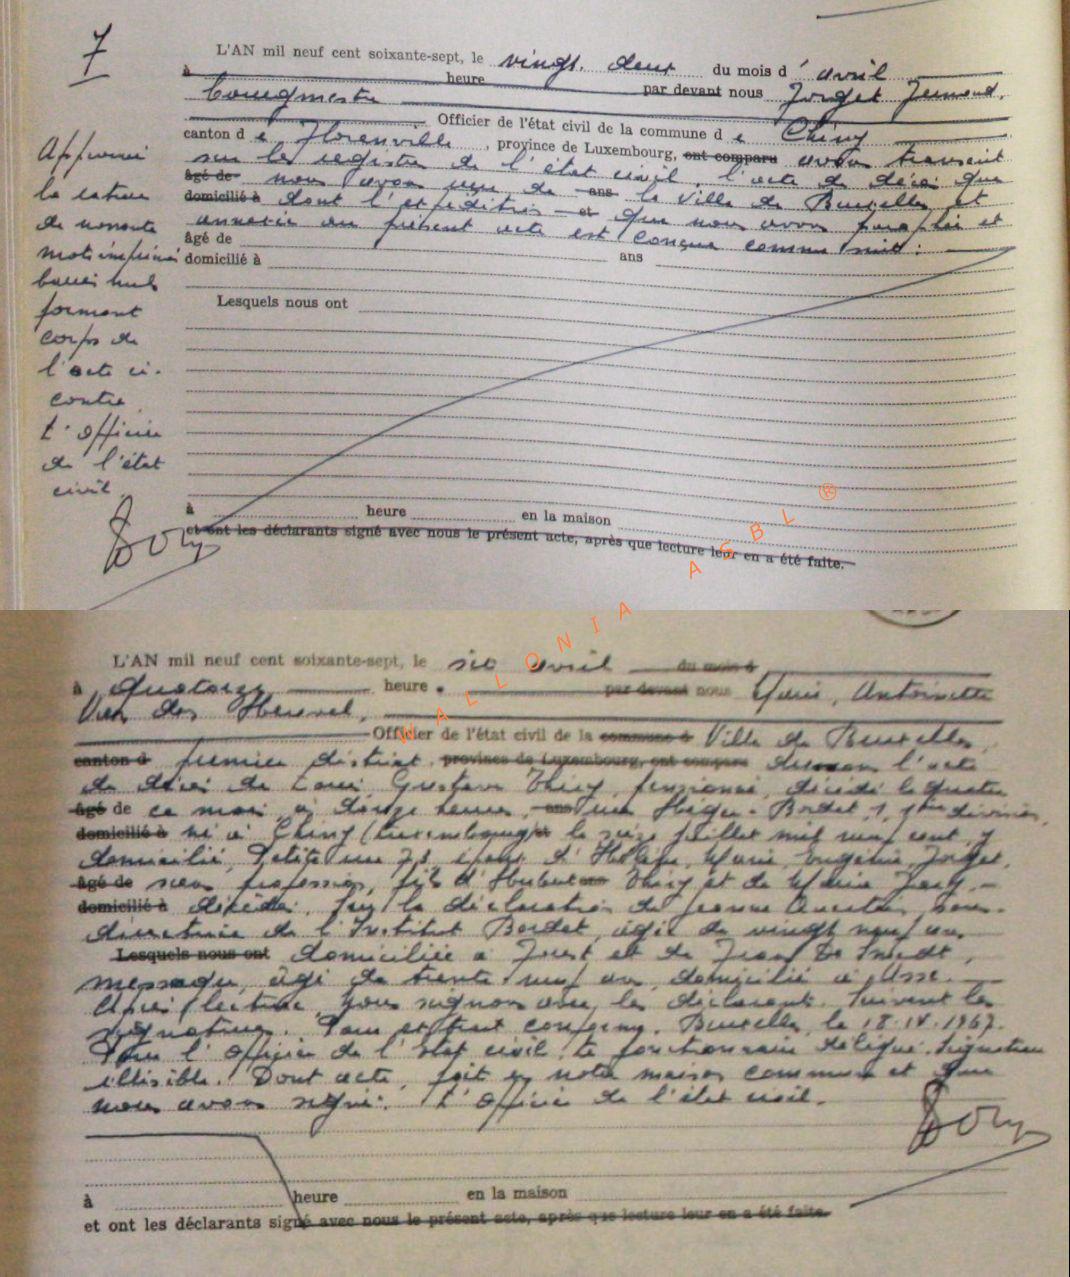 7
L'AN mil neuf cent soixante-sept, le vingt deux du mois d' avril
à heure par devant nous Forget Fernand,
bourgmestre
Officier de l'état civil de la commune de Chiny
canton de Florenville, province de Luxembourg, ont comparu avons transcrit
sur les registres de l'état civil, l'acte de décès que
âgé de nous avons reçu de ans la Ville de Bruxelles et
domicilié à dont l'expédition et que nous avons paraphée et
annexée au présent acte est conçue comme suit :
âgé de ans
domicilié à
Lesquels nous ont
à heure en la maison
et ont les déclarants signé avec nous le présent acte, après que lecture leur en a été faite.
Approuvé
la rature
de nonante
mots imprimés
barrés nuls
formant
corps de
l'acte ci-
contre
L'officier
de l'état
civil
WALLONIA ASBL ®
L'AN mil neuf cent soixante-sept, le six avril du mois d
à quatorze heure. par devant nous Marie, Antoinette
Van den Heuvel,
Officier de l'état civil de la commune d Ville de Bruxelles,
canton d premier district, province de Luxembourg, ont comparu dressons l'acte
de décès de Louis Gustave Thiry, pensionné, décédé le quatre
âgé de ce mois à douze heures, ans rue Héger-Bordet 1, division,
domicilié à né à Chiny (Luxembourg) et le seize juillet mil neuf cent, y
domicilié, Petite rue 73, époux d'Hélène, Marie, Eugénie, Forget,
âgé de sans profession, fils d'Hubert ans Thiry et de Marie
domicilié à décédés. Sur la déclaration de Jeanne sous-
directrice de l'Institut Bordet, âgée de vingt neuf ans
Lesquels nous ont domiciliée à Forest et de Jean De Smedt,
messager, âgé de trente neuf ans, domicilié à Asse.
Après lecture, nous signons avec les déclarants. Suivent les
signatures. Pour extrait conforme. Bruxelles, le 18.IV.1967.
Pour l'Officier de l'état civil, le fonctionnaire délégué. Signature
illisible. Dont acte, fait en notre maison commune et que
nous avons signé. L'officier de l'état civil.
à heure en la maison
et ont les déclarants signé avec nous le présent acte, après que lecture leur en a été faite.